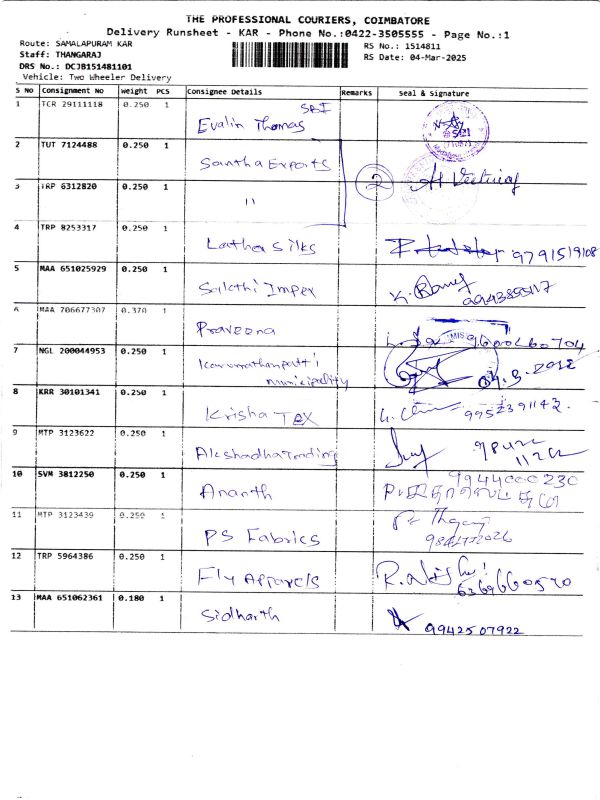 THE PROFESSIONAL COURIERS, COIMBATORE
Delivery Runsheet - KAR - Phone No.:0422-3505555 - Page No.:1
Route: SAMALAPURAM KAR RS No.: 1514811
Staff: THANGARAJ RS Date: 04-Mar-2025
DRS No.: DCJB151481101
Vehicle: Two Wheeler Delivery
S NO Consignment No Weight PCS Consignee Details Remarks Seal & signature
1 TCR 29111118 0.250 1 Evalin Thomas SBI
2 TUT 7124488 0.250 1 Santha Exports
3 TRP 6312820 0.250 1 " 2
4 TRP 8253317 0.250 1 Latha Silks 9791519108
5 MAA 651025929 0.250 1 Sakthi Impex
6 MAA 706677307 0.370 1 Praveena 9600460704
7 NGL 200044953 0.250 1 Karumathampatti
municipality
8 KRR 30101341 0.250 1 Krisha TEX 9952391142.
9 MTP 3123622 0.250 1 Akshadha Trading
10 SVM 3812250 0.250 1 Ananth 9944000230
11 MTP 3123439 0.250 1 PS Fabrics
12 TRP 5964386 0.250 1 Fly Apparels 6369660520
13 MAA 651062361 0.180 1 Sidharth 9942507922